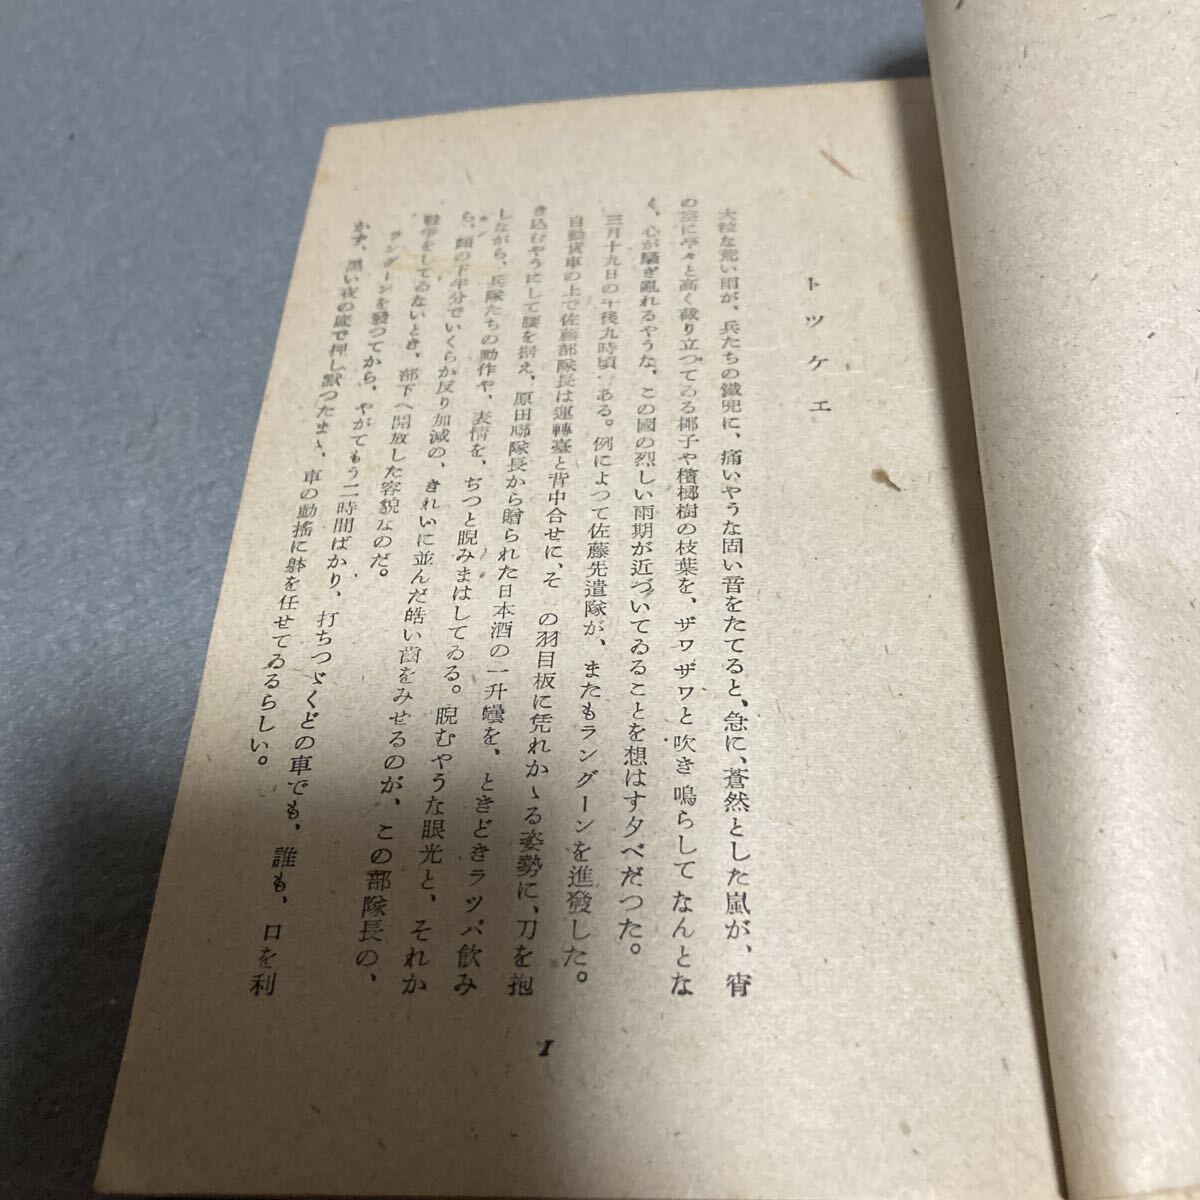 トツケエ
大粒な荒い雨が、兵たちの鐵兜に、痛いやうな固い音をたてると、急に、蒼然とした嵐が、宵
の空に亭々と高く截り立つてゐる椰子や檳榔樹の枝葉を、ザワザワと吹き鳴らして なんとな
く、心が騒ぎ亂れるやうな、この國の烈しい雨期が近づいてゐることを想はす夕べだつた。
三月十九日の午後九時頃 ある。例によつて佐藤先遣隊が、またもラングーンを進發した。
自動貨車の上で佐藤部隊長は運轉臺と背中合せに、そ の羽目板に凭れかゝる姿勢に、刀を抱
き込むやうにして腰を据え、原田聯隊長から贈られた日本酒の一升罎を、ときどきラツパ飲み
しながら、兵隊たちの動作や、表情を、ぢつと睨みまはしてゐる。睨むやうな眼光と、それか
ら、顔の下半分でいくらか反り加減の、きれいに並んだ皓い齒をみせるのが、この部隊長の、
戰爭をしてゐないとき、部下へ開放した容貌なのだ。
ラングーンを發つてから、やがてもう二時間ばかり、打ちつゞくどの車でも、誰も、口を利
かず、黒い夜の底で押し默つたまゝ、車の動搖に躰を任せてゐるらしい。
1